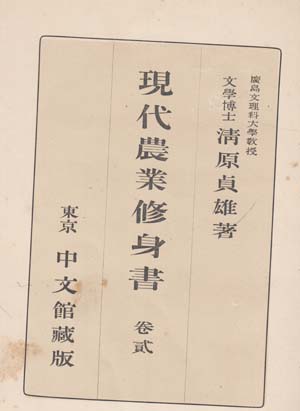 廣島文理科大學敎授
文學博士 淸原貞雄著
現代農業修身書 卷貳
東京 中文館藏版